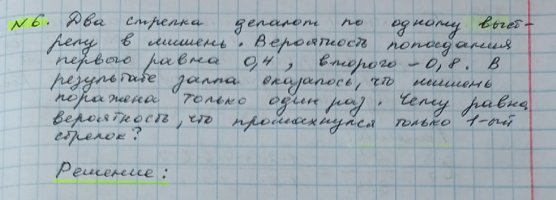 №6. Два стрелка делают по одному выст-
релу в мишень. Вероятность попадания
первого равна 0,4, второго - 0,8. В
результате залпа оказалось, что мишень
поражена только один раз. Чему равна
вероятность, что промахнулся только 1-ый
стрелок?
Решение: